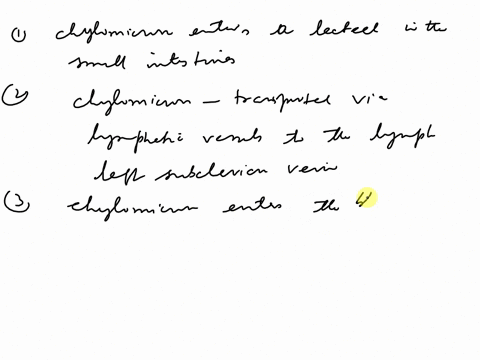 ① chylomicron enters a lacteal in the
small intestines
② chylomicron – transported via
lymphatic vessels to the lymph
left subclavian vein
③ chylomicron enters the